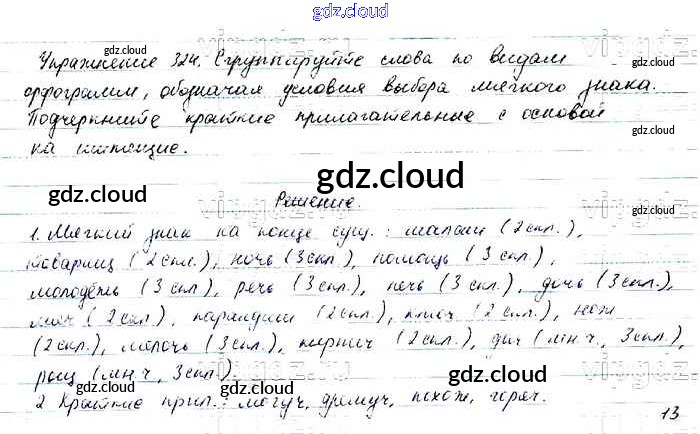 gdz.cloud
Упражнение 324. Сгруппируйте слова по видам
gdz.cloud
орфограмм, обозначая условия выбора мягкого знака.
Подчеркните краткие прилагательные с основой
gdz.cloud
на шипящие.
gdz.cloud
gdz.cloud
Решение.
1. Мягкий знак на конце сущ.: шалаш (2 скл.),
gdz.cloud gdz.cloud
товарищ (2 скл.), ночь (3 скл.), помощь (3 скл.),
молодёжь (3 скл.), речь (3 скл.), печь (3 скл.), дочь (3 скл.),
мяч (2 скл.), карандаш (2 скл.), ключ (2 скл.), нож
(2 скл.), мелочь (3 скл.), кирпич (2 скл.), (мн.ч., 3 скл.),
gdz.cloud
рощ (мн.ч., 3 скл.).
gdz.cloud
2 Краткие прил.: могуч, дремуч, похож, горяч.
gdz.cloud
13